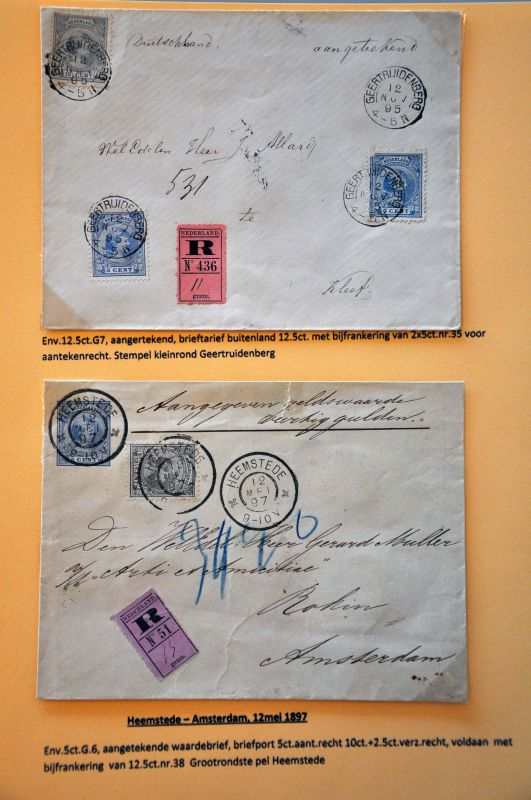 Deutschland.
aangetekend
GEERTRUIDENBERG
12
95
4-5N
GEERTRUIDENBERG
12
NOV
95
4-5N
WelEdelen Heer J. Allard
531
te
NEDERLAND
GEERTRUIDENBERG
GEERTRUIDENBERG
5 CENT
NEDERLAND.
R
No 436
11
gram.
Kleef.
Env.12.5ct.G7, aangertekend, brieftarief buitenland 12.5ct. met bijfrankering van 2x5ct.nr.35 voor
aantekenrecht. Stempel kleinrond Geertruidenberg
HEEMSTEDE
12
MEI
97
9-10V
Aangegeven geldswaarde
veertig gulden.
HEEMSTEDE
HEEMSTEDE
12
MEI
97
9-10V
Den Heer Gerard Muller
"Arti et Amicitiae"
Rokin
Amsterdam
NEDERLAND.
R
No 51
15
gram.
Heemstede – Amsterdam, 12mei 1897
Env.5ct.G.6, aangetekende waardebrief, briefport 5ct.aant.recht 10ct.+2.5ct.verz.recht, voldaan met
bijfrankering van 12.5ct.nr.38 Grootrondste pel Heemstede